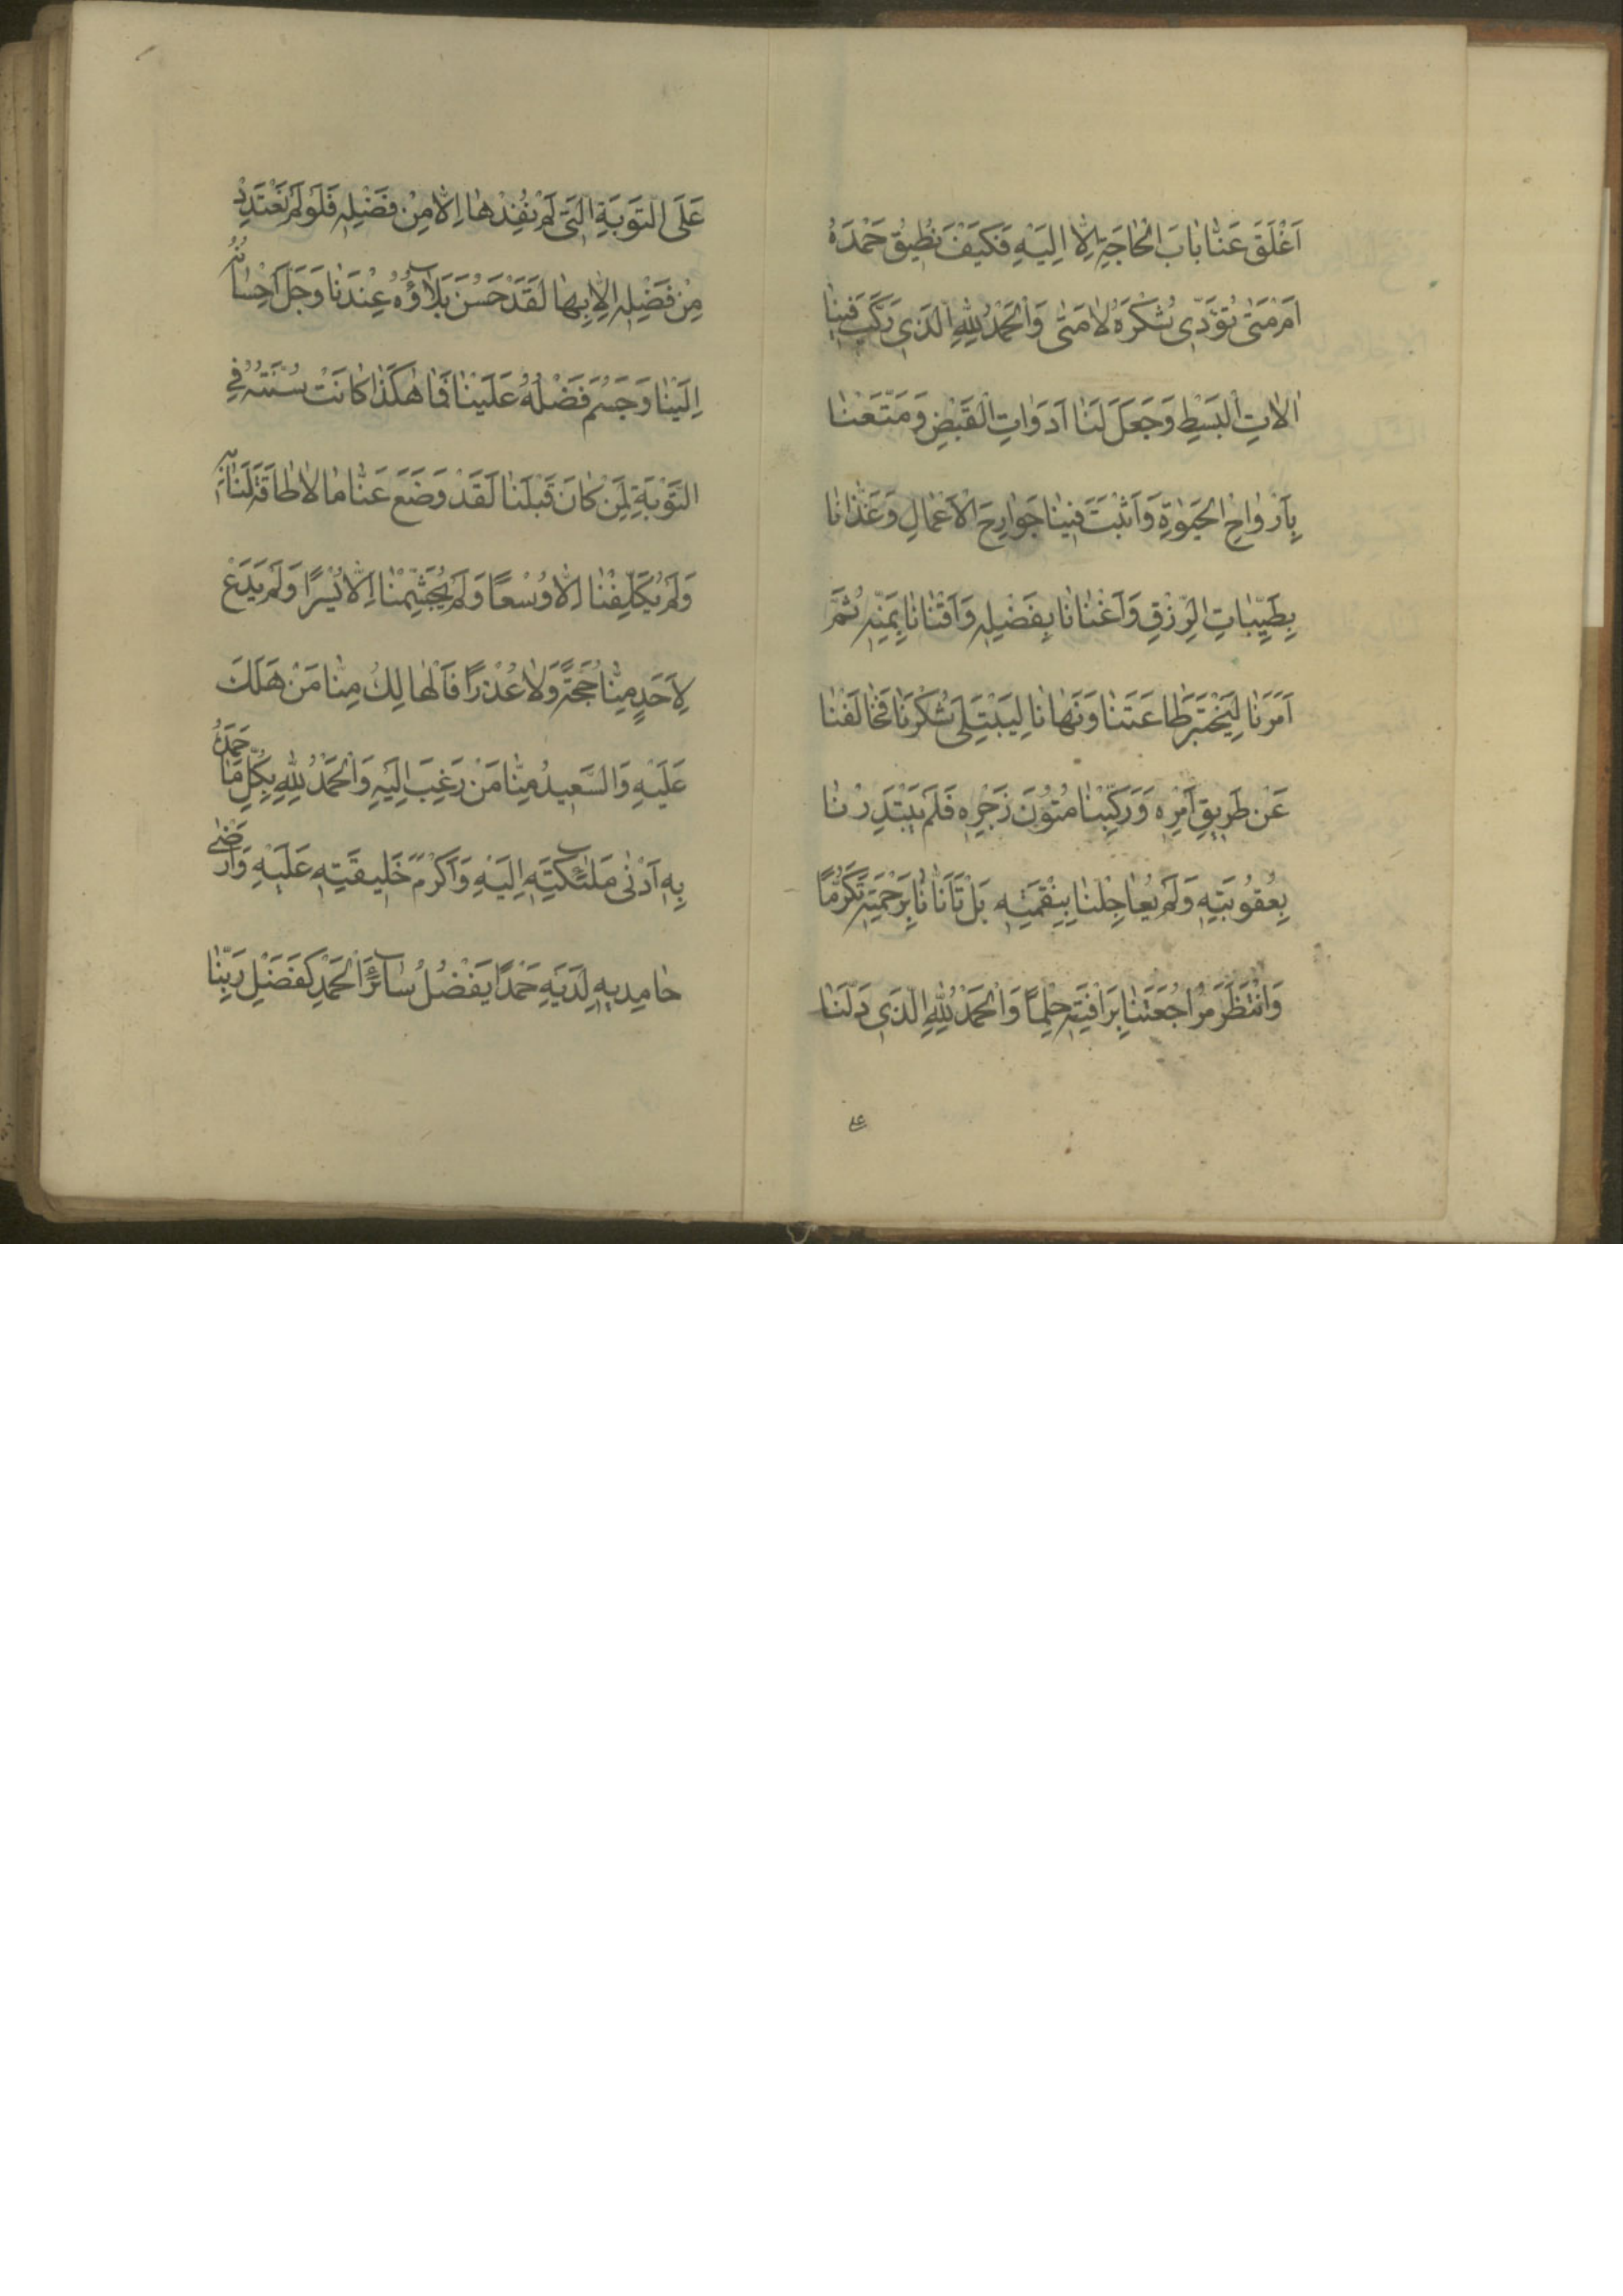 اَغْلَقَ عَنَّا بٰابَ الْحٰاجَةِ اِلّٰا اِلَيْهِ فَكَيْفَ نُطِيقُ حَمْدَهُ
اَمْ مَتىٰ نُؤَدِّى شُكْرَهُ لٰا مَتىٰ وَالْحَمْدُ لِلّٰهِ الَّذِى رَكَّبَ فِينٰا
اٰلٰاتِ الْبَسْطِ وَجَعَلَ لَنٰا اَدَوٰاتِ الْقَبْضِ وَمَتَّعَنٰا
بِاَرْوٰاحِ الْحَيٰوةِ وَاَثْبَتَ فِينٰا جَوٰارِحَ الْاَعْمٰالِ وَغَذّٰانٰا
بِطَيِّبٰاتِ الرِّزْقِ وَاَغْنٰانٰا بِفَضْلِهٖ وَاَقْنٰانٰا بِمَنِّهٖ ثُمَّ
اَمَرَنٰا لِيَخْتَبِرَ طٰاعَتَنٰا وَنَهٰانٰا لِيَبْتَلِىَ شُكْرَنٰا فَخٰالَفْنٰا
عَنْ طَرِيقِ اَمْرِهٖ وَرَكِبْنٰا مُتُونَ زَجْرِهٖ فَلَمْ يَبْتَدِرْنٰا
بِعُقُوبَتِهٖ وَلَمْ يُعٰاجِلْنٰا بِنِقْمَتِهٖ بَلْ تَاَنّٰانٰا بِرَحْمَتِهٖ تَكَرُّمًا
وَانْتَظَرَ مُرٰاجَعَتَنٰا بِرَاْفَتِهٖ حِلْمًا وَالْحَمْدُ لِلّٰهِ الَّذِى دَلَّنٰا
على
عَلَى التَّوْبَةِ الَّتِى لَمْ نُفِدْهٰا اِلّٰا مِنْ فَضْلِهٖ فَلَوْ لَمْ نَعْتَدِدْ
مِنْ فَضْلِهٖ اِلّٰا بِهٰا لَقَدْ حَسُنَ بَلٰاؤُهُ عِنْدَنٰا وَجَلَّ اِحْسٰانُهُ
اِلَيْنٰا وَجَسُمَ فَضْلُهُ عَلَيْنٰا فَمٰا هٰكَذٰا كٰانَتْ سُنَّتُهُ فِى
التَّوْبَةِ لِمَنْ كٰانَ قَبْلَنٰا لَقَدْ وَضَعَ عَنّٰا مٰا لٰا طٰاقَةَ لَنٰا بِهٖ
وَلَمْ يُكَلِّفْنٰا اِلّٰا وُسْعًا وَلَمْ يُجَشِّمْنٰا اِلّٰا يُسْرًا وَلَمْ يَدَعْ
لِاَحَدٍ مِنّٰا حُجَّةً وَلٰا عُذْرًا فَالْهٰالِكُ مِنّٰا مَنْ هَلَكَ
عَلَيْهِ وَالسَّعِيدُ مِنّٰا مَنْ رَغِبَ اِلَيْهِ وَالْحَمْدُ لِلّٰهِ بِكُلِّ مٰا حَمَدَهُ
بِهٖ اَدْنىٰ مَلٰئِكَتِهٖ اِلَيْهِ وَاَكْرَمُ خَلِيقَتِهٖ عَلَيْهِ وَاَرْضىٰ
حٰامِدِيهِ لَدَيْهِ حَمْدًا يَفْضُلُ سٰائِرَ الْحَمْدِ كَفَضْلِ رَبِّنٰا